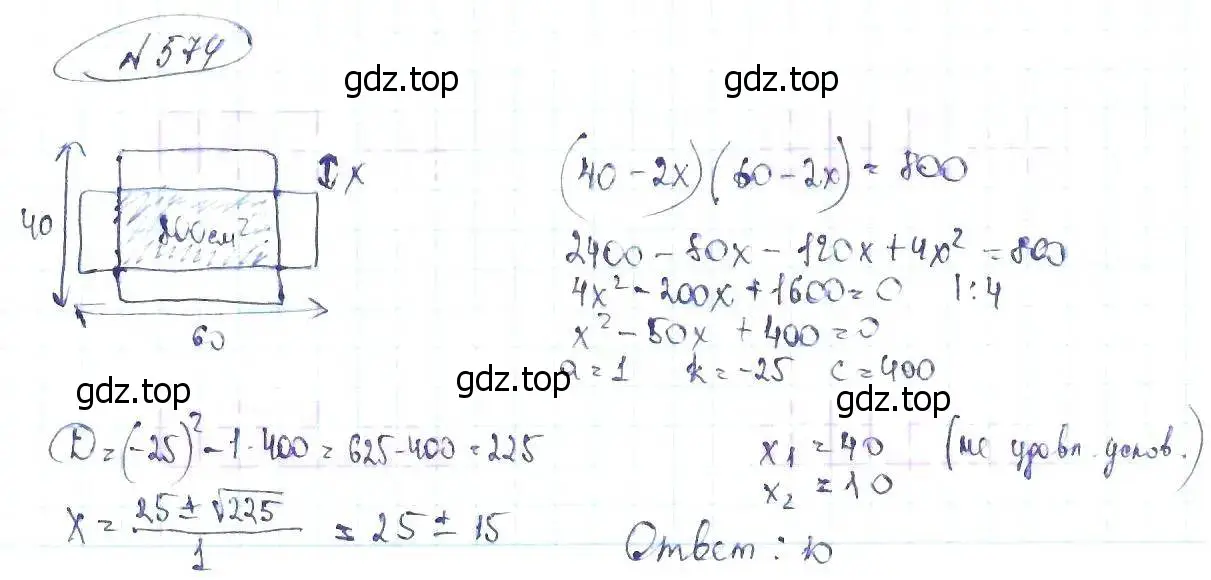 N 574
gdz.top gdz.top
40
x
800 см²
60
(40 - 2x)(60 - 2x) = 800
2400 - 80x - 120x + 4x² = 800
4x² - 200x + 1600 = 0 | : 4
x² - 50x + 400 = 0
a = 1 k = -25 c = 400
gdz.top gdz.top gdz.top
D = (-25)² - 1 · 400 = 625 - 400 = 225
x = (25 ± √225)/1 = 25 ± 15
x₁ = 40 (не удовл. услов.)
x₂ = 10
Ответ: 10